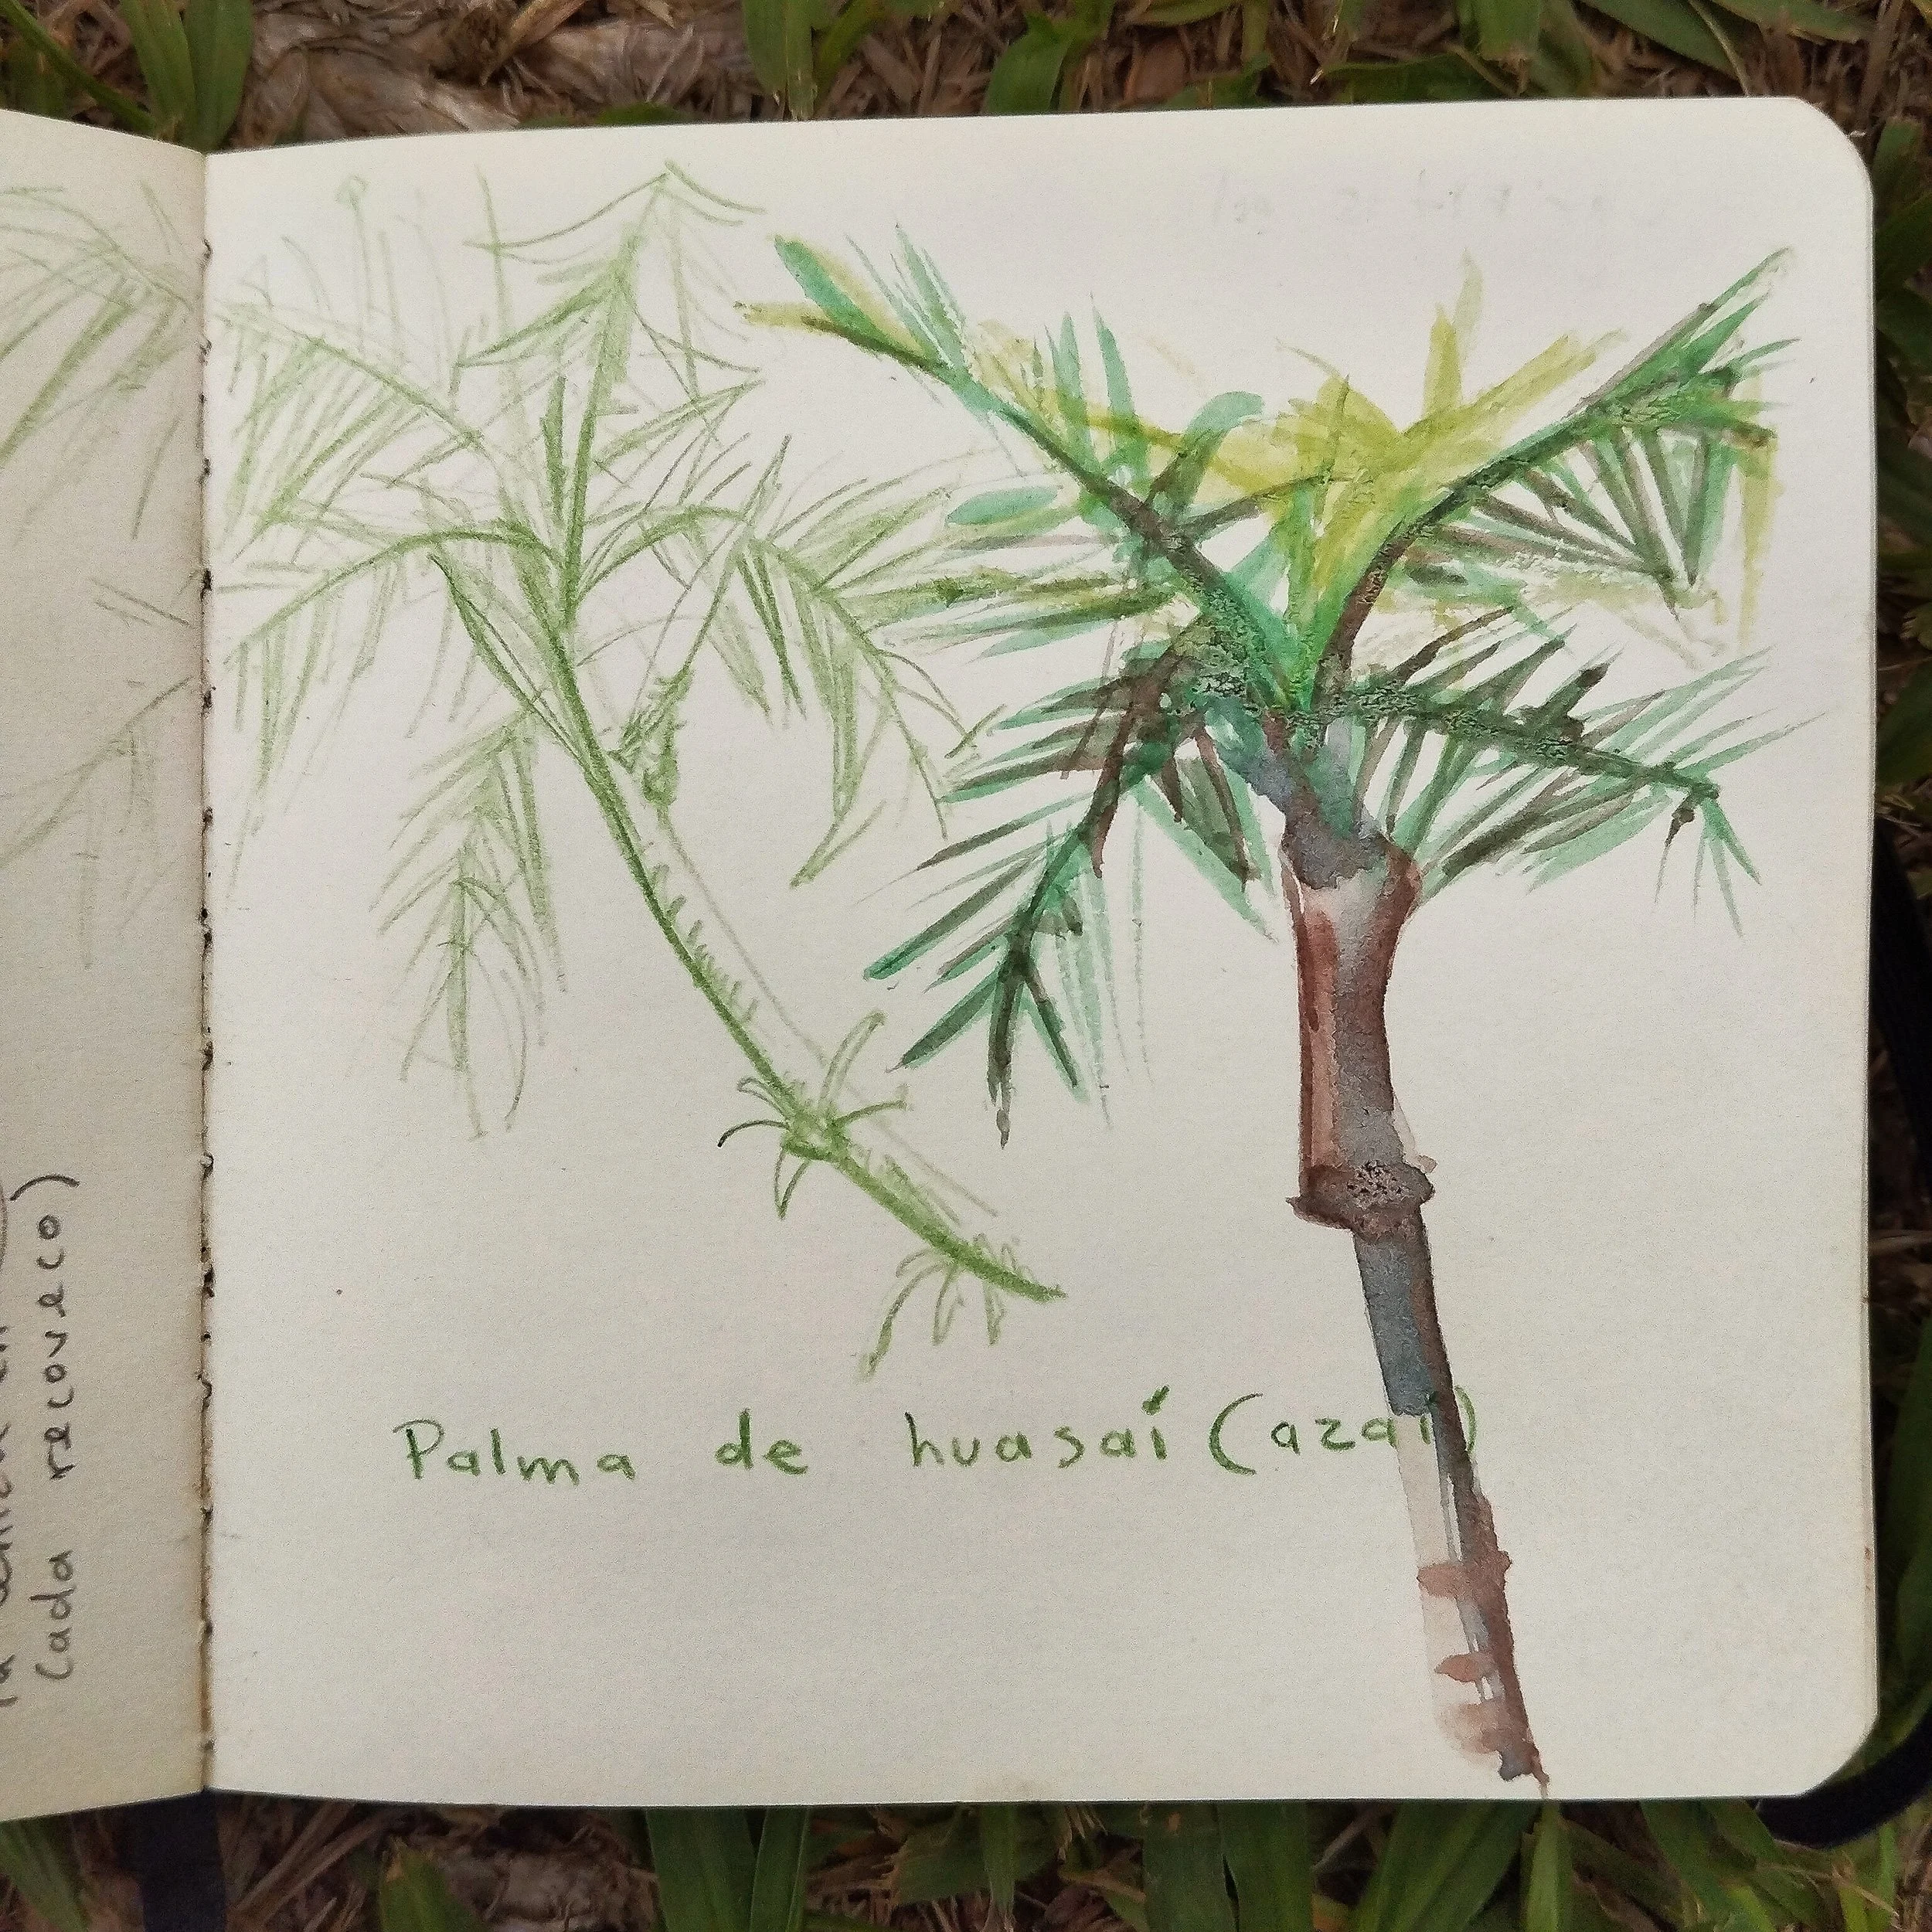 Palma de huasaí (azaí)
cada recoveco)